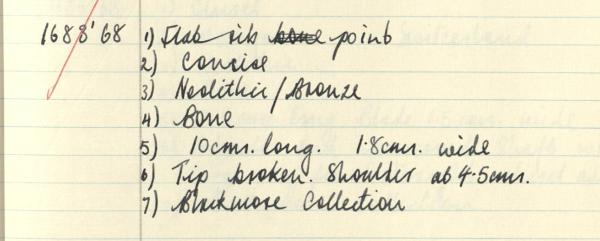 1688'68 1) Flat rib bone point
2) Concise
3) Neolithic/Bronze
4) Bone
5) 10cms. long. 1.8cms. wide
6) Tip broken. Shoulder at 4.5cms.
7) Blackmore Collection